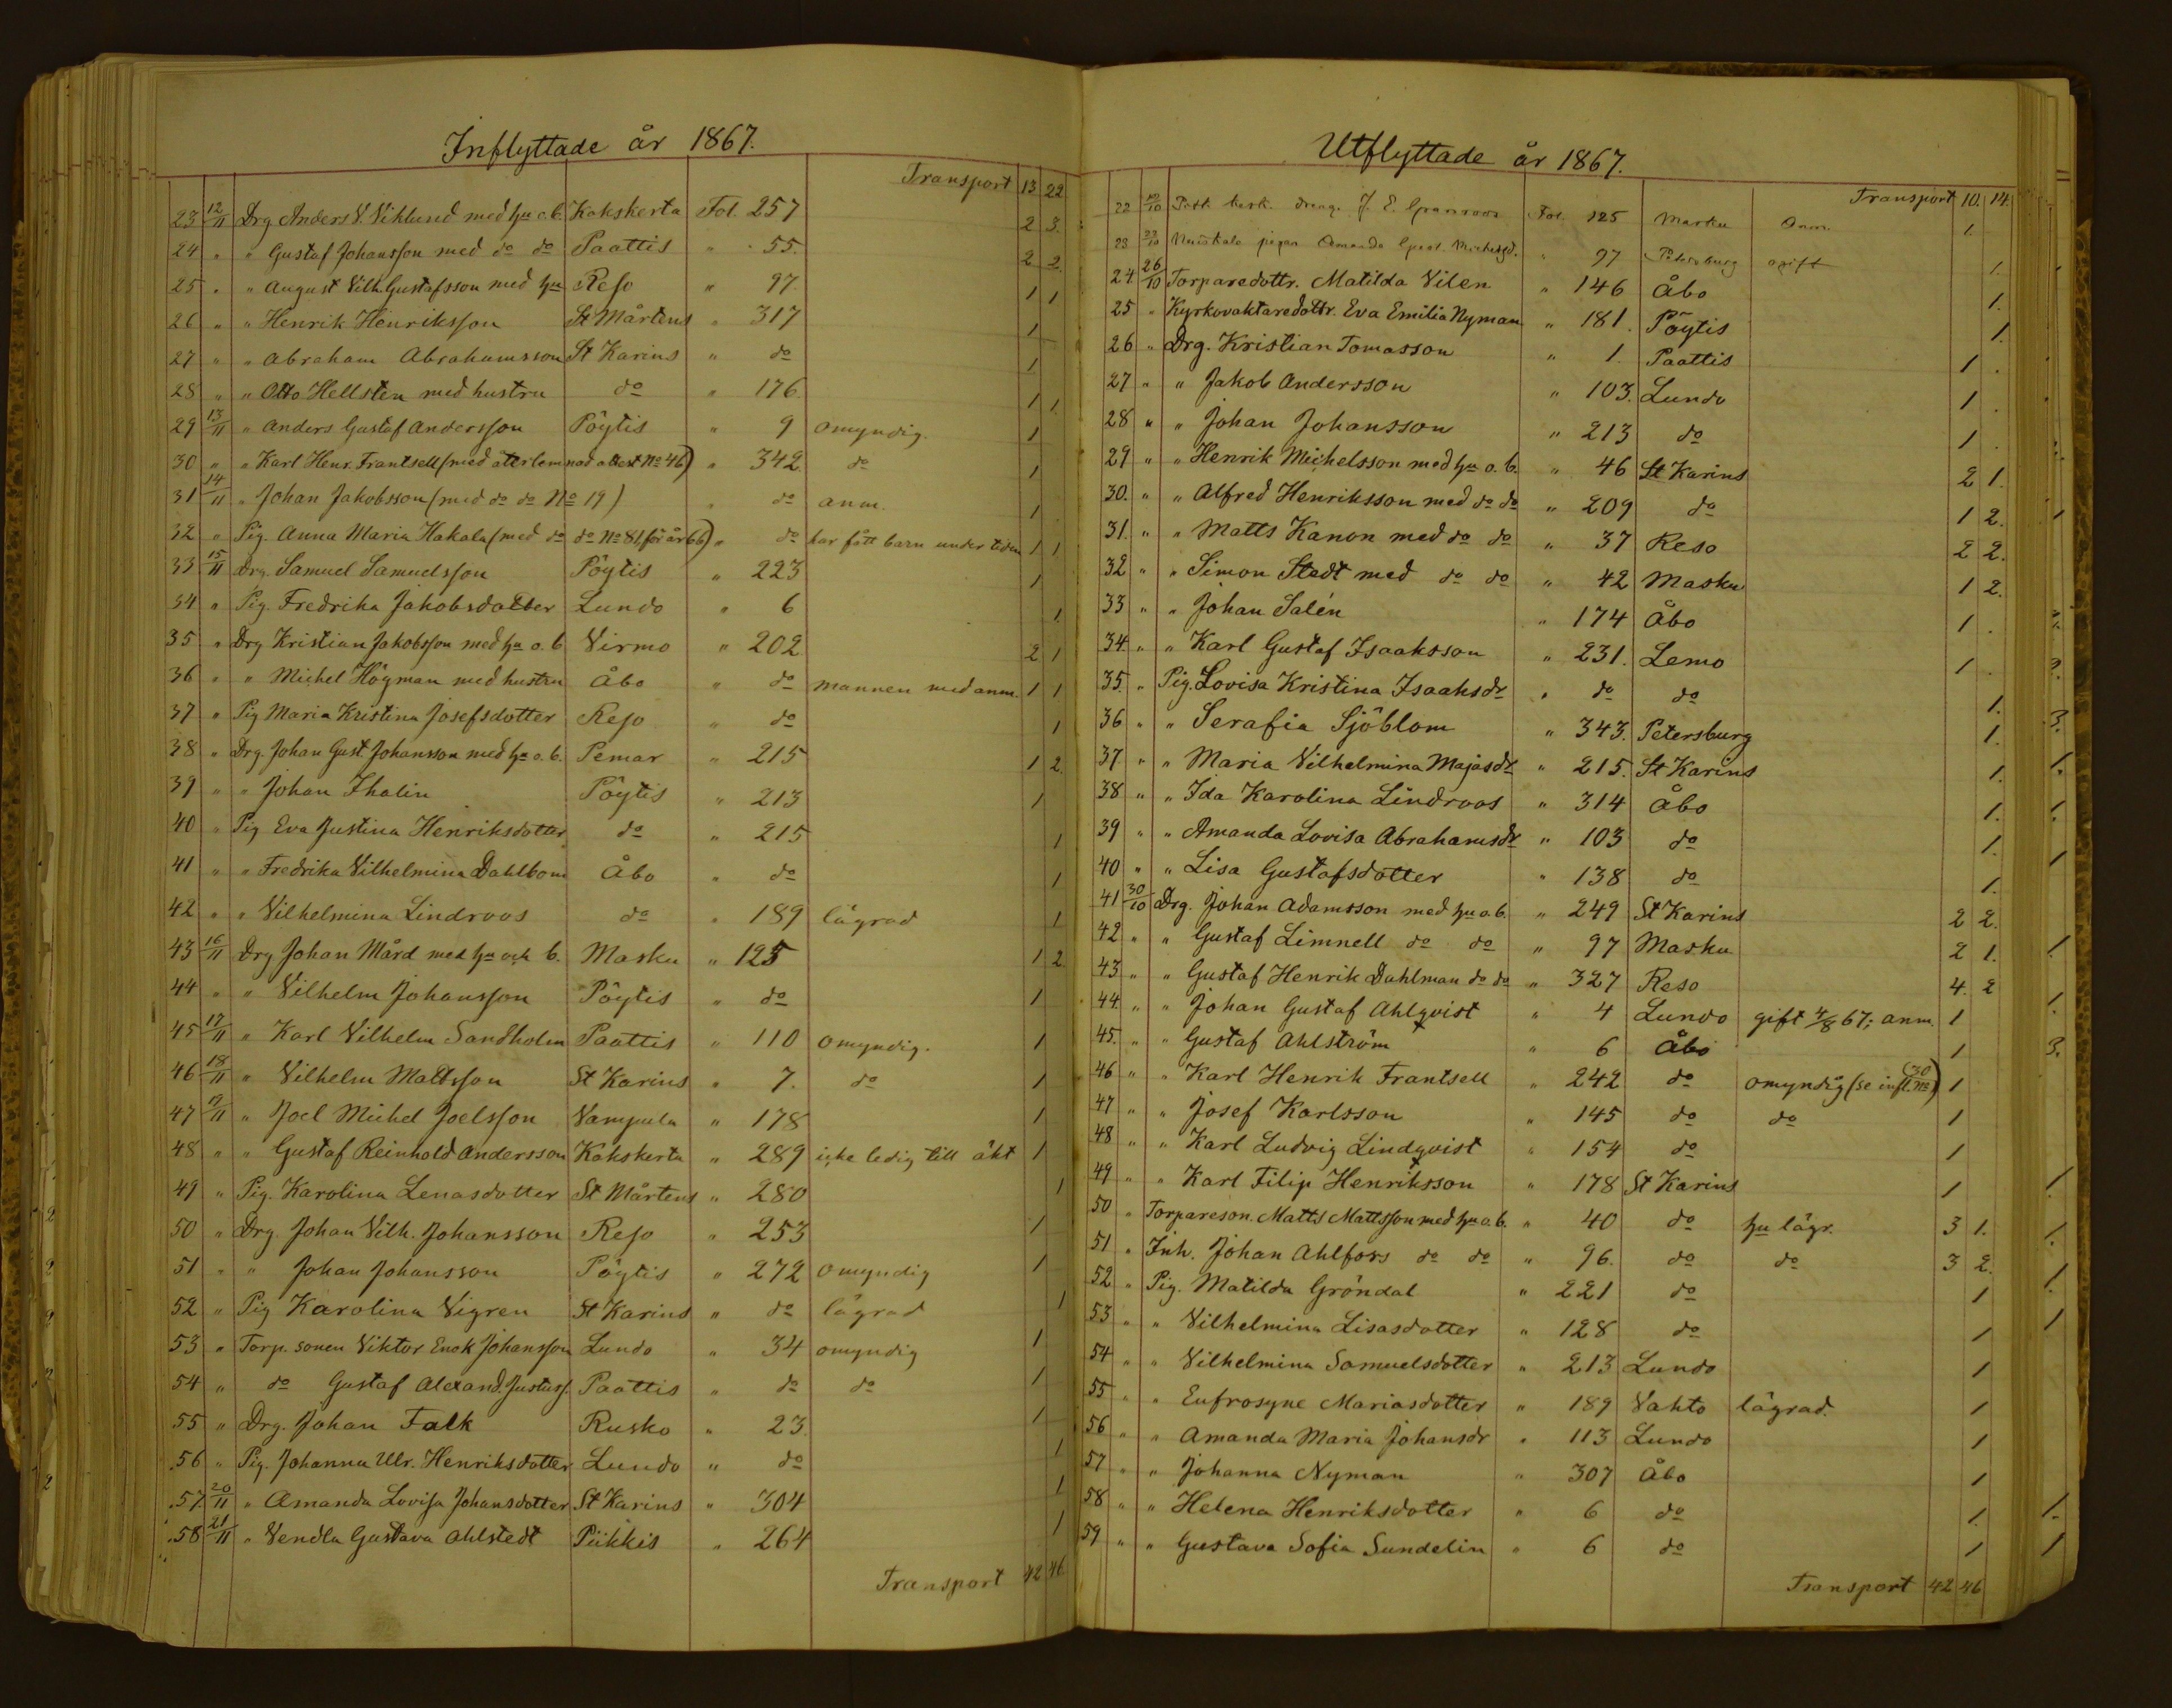 Inflyttade år 1867.
Transport 13 22
23 12/11 Drg Anders V. Viklund med hu o.b. Kakskerta Fol. 257 2 3.
24 " " Gustaf Johansson med do do Paattis " 55. 2 2.
25 " " August Vilh. Gustafsson med hu Reso " 97 1 1
26 " " Henrik Henriksson St Mårtens " 317 1
27 " " Abraham Abrahamsson St Karins " do 1
28 " " Otto Hellsten med hustru do " 176. 1 1
29 13/11 " Anders Gustaf Andersson Pöytis " 9 omyndig. 1
30 " " Karl Henr. Frantsell (med återlemnad attest No 46) " 342. do 1
31 14/11 " Johan Jakobsson (med do do No 19) " do anm. 1
32 " Pig. Anna Maria Hakala (med do do No 81 för år 66) " do har fått barn under tiden 1 1
33 15/11 Drg. Samuel Samuelsson Pöytis " 223 1
34 " Pig. Fredrika Jakobsdotter Lundo " 6 1
35 " Drg Kristian Jakobsson med hu o.b Virmo " 202. 2 1
36 " " Michel Högman med hustru Åbo " do mannen med anm. 1 1
37 " Pig Maria Kristina Josefsdotter Reso " do 1
38 " Drg. Johan Gust. Johansson med hu o.b. Pemar " 215 1 2
39 " " Johan Thalin Pöytis " 213 1
40 " Pig Eva Justina Henriksdotter do " 215 1
41 " " Fredrika Vilhelmina Dahlbom Åbo " do 1
42 " " Vilhelmina Lindroos do " 189 lägrad 1
43 16/11 Drg Johan Mård med hu och b. Masku " 125 1 2
44 " " Vilhelm Johansson Pöytis " do 1
45 17/11 " Karl Vilhelm Sandholm Paattis " 110 omyndig. 1
46 18/11 " Vilhelm Mattsson St Karins " 7. do 1
47 19/11 " Joel Michel Joelsson Vampula " 178 1
48 " " Gustaf Reinhold Andersson Kakskerta " 289 icke ledig till äkt 1
49 " Pig. Karolina Lenasdotter St Mårtens " 280 1
50 " Drg. Johan Vilh. Johansson Reso " 253 1
51 " " Johan Johansson Pöytis " 272 omyndig 1
52 " Pig Karolina Vigren St Karins " do lägrad 1
53 " Torp. sonen Viktor Enok Johansson Lundo " 34 omyndig 1
54 " do Gustaf Alexand. Justuss. Paattis " do do 1
55 " Drg. Johan Falk Rusko " 23. 1
56 " Pig. Johanna Ulr. Henriksdotter Lundo " do 1
57 20/11 " Amanda Lovisa Johansdotter St Karins " 304 1
58 21/11 " Vendla Gustava Ahlstedt Piikkis " 264 1
Transport 42 46
Utflyttade år 1867.
Transport 10. 14.
22 J. E. Granroos Fol. 125 Masku Anm. 1.
23 pigan Amanda 97 Petersburg ogift 1.
24 26/10 Torparedottr. Matilda Vilen " 146 Åbo 1.
25 " Kyrkovaktaredottr. Eva Emilia Nyman " 181. Pöytis 1.
26 " Drg. Kristian Tomasson " 1. Paattis 1 .
27 " " Jakob Andersson " 103. Lundo 1 .
28 " " Johan Johansson " 213 do 1 .
29 " " Henrik Michelsson med hu o.b. " 46 St Karins 2 1.
30. " " Alfred Henriksson med do do " 209 do 1 2.
31. " " Matts Kanon med do do " 37 Reso 2 2.
32 " " Simon Stedt med do do " 42 Masku 1 2.
33 " " Johan Salén " 174 Åbo 1 .
34 " " Karl Gustaf Isaaksson " 231. Lemo 1 .
35. " Pig. Lovisa Kristina Isaaksdr " do do 1.
36 " " Serafia Sjöblom " 343. Petersburg 1.
37 " " Maria Vilhelmina Majasdr " 215. St Karins 1.
38 " " Ida Karolina Lindroos " 314 Åbo 1.
39 " " Amanda Lovisa Abrahamsdr " 103 do 1.
40 " " Lisa Gustafsdotter " 138 do 1.
41 30/10 Drg. Johan Adamsson med hu o.b. " 249 St Karins 2 2.
42 " " Gustaf Limnell do do " 97 Masku 2 1.
43 " " Gustaf Henrik Dahlman do do " 327 Reso 4. 2
44. " " Johan Gustaf Ahlqvist " 4 Lundo gift 4/8 67; anm. 1
45. " " Gustaf Ahlström " 6 Åbo 1
46 " " Karl Henrik Frantsell " 242 do omyndig (se infl. No 30) 1
47 " " Josef Karlsson " 145 do do 1
48 " " Karl Ludvig Lindqvist " 154 do 1
49 " " Karl Filip Henriksson " 178 St Karins 1
50 " Torpareson. Matts Mattsson med hu o.b. " 40 do hu lägr. 3 1.
51 " Inh. Johan Ahlfors do do " 96. do do 3 2.
52 " Pig. Matilda Gröndal " 221 do 1
53 " " Vilhelmina Lisasdotter " 128 do 1
54 " " Vilhelmina Samuelsdotter " 213 Lundo 1
55 " " Eufrosyne Mariasdotter " 189 Vahto lägrad. 1
56 " " Amanda Maria Johansdr " 113 Lundo 1
57 " " Johanna Nyman " 307 Åbo 1
58 " " Helena Henriksdotter " 6 do 1.
59 " " Gustava Sofia Sundelin " 6 do 1
Transport 42 46